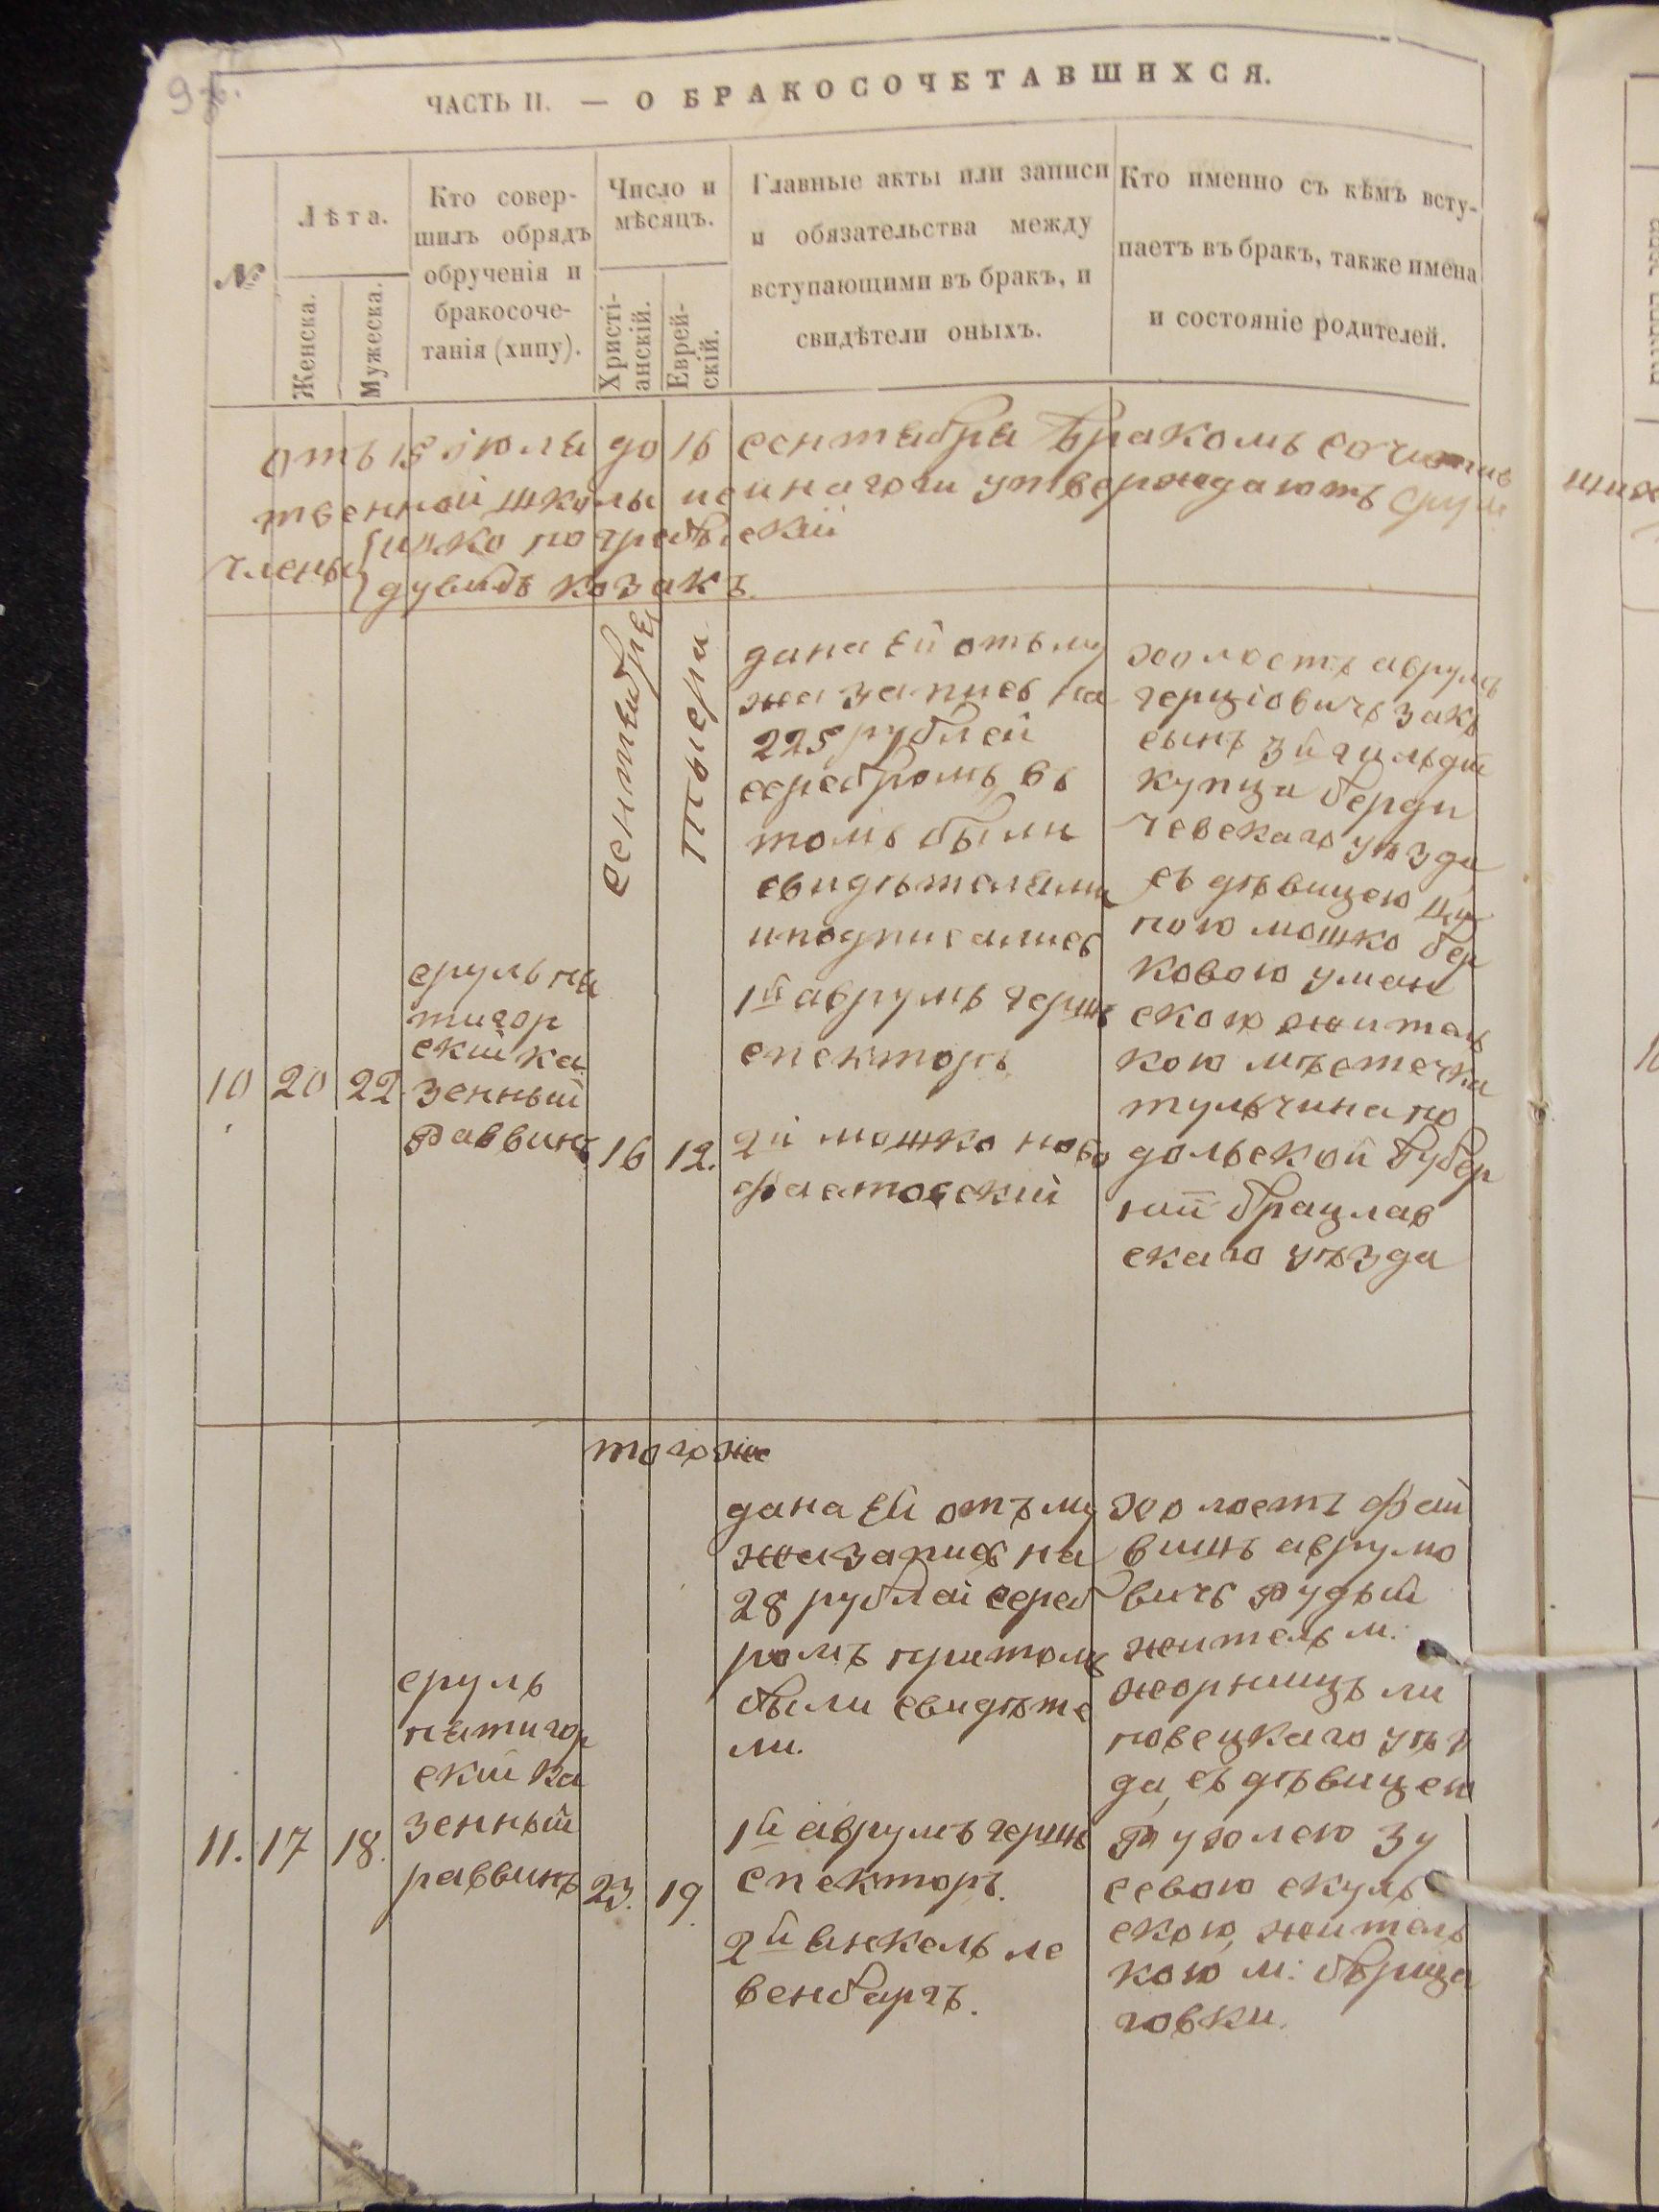 ЧАСТЬ II. — О БРАКОСОЧЕТАВШИХСЯ.
№
Лѣта.
Женска.
Мужеска.
Кто совер-
шилъ обрядъ
обрученія и
бракосоче-
танія (хипу).
Число и
мѣсяцъ.
Христі-
анскій.
Еврей-
скій.
Главные акты или записи
и обязательства между
вступающими въ бракъ, и
свидѣтели оныхъ.
Кто именно съ кѣмъ всту-
паетъ въ бракъ, также имена
и состояніе родителей.
Отъ 15 іюля до 16 сентября бракомъ
твенной школы утверждаютъ
члены
дувидъ козакъ.
10
20
22
сруль пя
тигор
скій ка
зенный
раввинъ
сентября
16
тышри
12.
дана ей отъ му
жа запись на
225 рублей
серебромъ, въ
томъ были
свидѣтелями
и подписались
1й аврумъ герш
спекторъ
2й мошко ново
фастовскій
холостъ аврумъ
герціовичъ закъ
сынъ 3й гильдіи
купца берди
чевскаго уѣзда
съ дѣвицею
пою мошко бер
ковою уман
скою житель
кою мѣстечка
тульчина по
дольской губер
ніи брацлав
скаго уѣзда
11.
17
18.
сруль
пятигор
скій ка
зенный
раввинъ
тогоже
23.
19.
дана ей отъ му
жа запись на
28 рублей сереб
ромъ притомъ
были свидѣте
ли.
1й аврумъ гершъ
спекторъ.
2й янкель ле
венбаргъ.
холостъ фай
вишъ аврумо
вичъ рудый
житель м:
жорнищъ ли
повецкаго уѣз
да, съ дѣвицею
зу
севою скуль
скою, житель
кою м: обрица
говки.